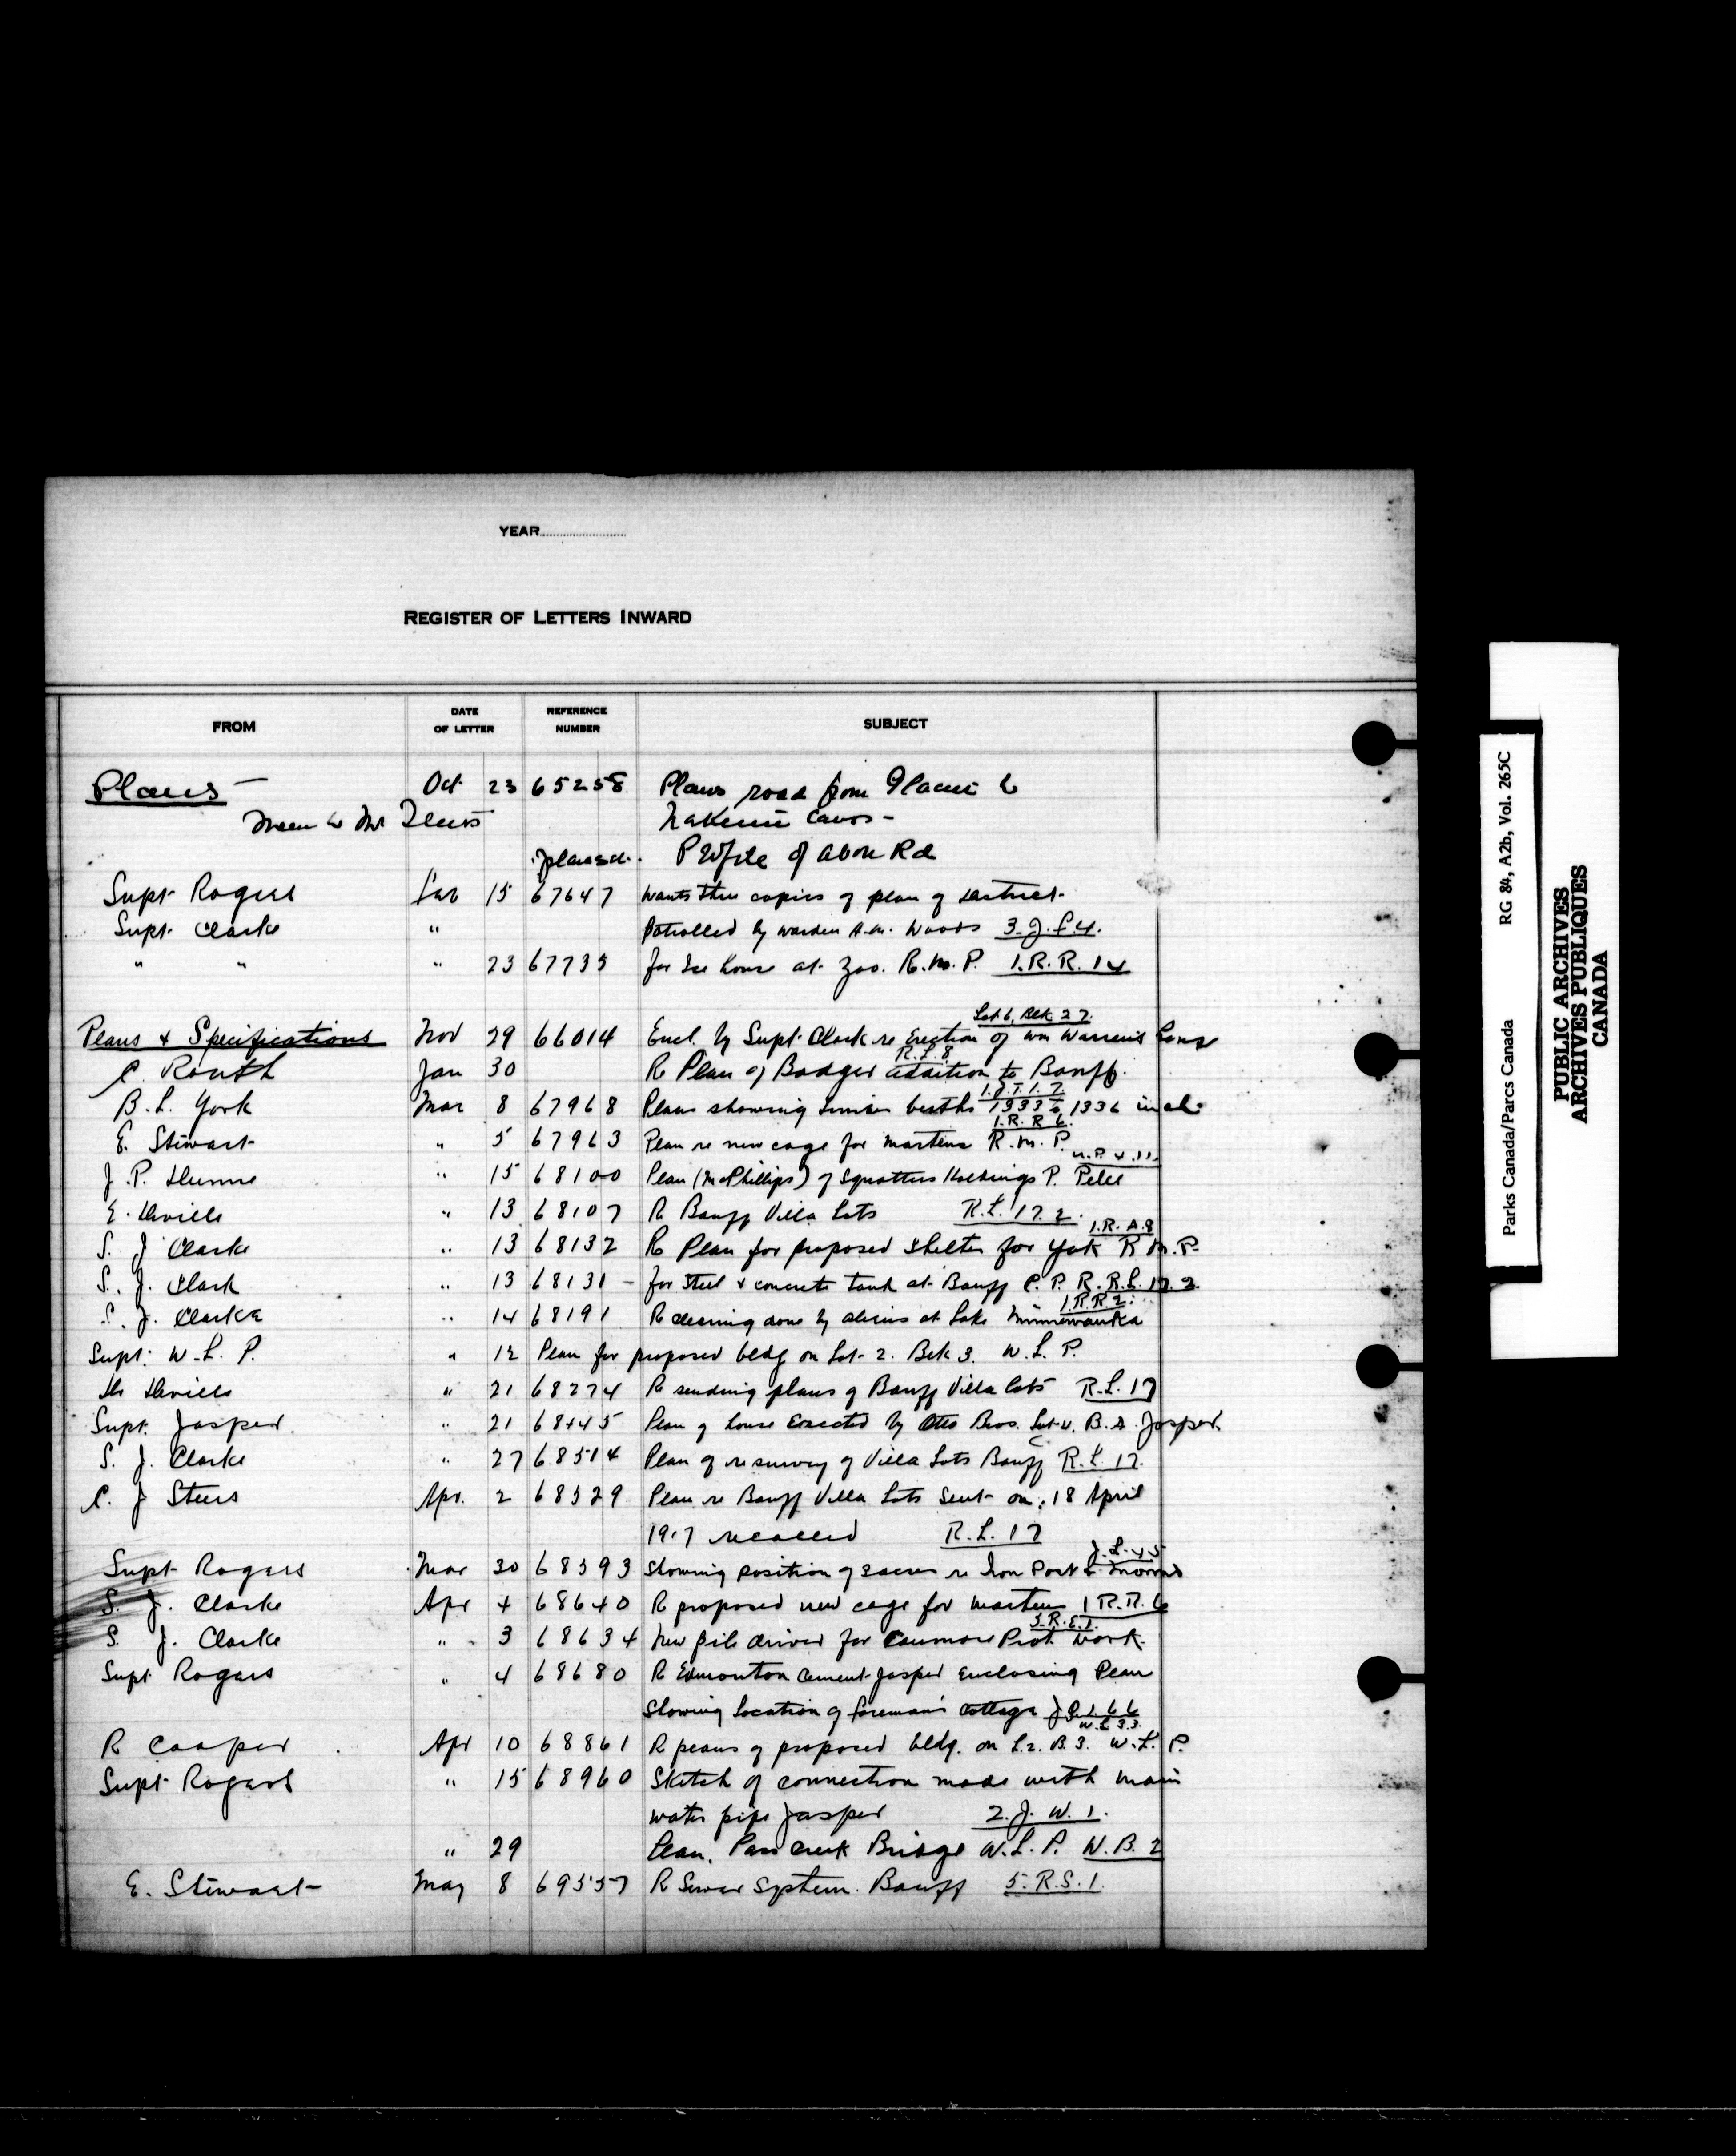 YEAR
REGISTER OF LETTERS INWARD
FROM DATE OF LETTER REFERENCE NUMBER SUBJECT
Plans - Oct 23 65258 Plans road from Glacier to
Nakimu Caves -
Profile of above Rd
Supt Rogers 15 67647 wants three copies of plan of district
Supt. Clarke " patrolled by warden A.M. Woods
" " " 23 67735 for Ice house at Zoo. R.M.P. 1.R.R.14
Lot 6, Blk 27.
Plans & Specifications Nov 29 66014 Encl. by Supt. Clark re Erection of Wm Warren's house
R.L.8
C. Routh Jan 30 R Plan of Badger addition to Banff.
1.J.T.1.7
B.L. York Mar 8 67968 Plans showing timber berths 1333 to 1336 incl.
1.R.R 6.
E. Stewart " 5 67963 Plan re new cage for martens R.M.P.
J.P. Dunne " 15 68100 Plan (McPhillips) of Squatters Holdings P. Pelee
E. Deville " 13 68107 R Banff Villa Lots R.L.17.2.
1.R.A.8
S. J. Clarke " 13 68132 R Plan for proposed shelter for Yak R.M.P.
S. J. Clark " 13 68131 - for Steel & concrete tank at Banff C.P.R. R.L.17.2
1.R.R.2.
S. J. Clarke " 14 68191 R clearing done by aliens at Lake Minnewanka
Supt. W.L.P. " 12 Plan for proposed bldg on Lot 2. Blk 3. W.L.P.
Dr Deville " 21 68274 R sending plans of Banff Villa Lots R.L.17
Supt. Jasper " 21 68445 Plan of house Erected by Otto Bros. Jasper.
S. J. Clarke " 27 68514 Plan of resurvey of Villa Lots Banff R.L.17.
C. J Steers Apr. 2 68529 Plan re Banff Villa Lots Sent on 18 April
1917 recalled R.L.17
Supt Rogers Mar 30 68593 Showing position of 2 acres re
S. J. Clarke Apr 4 68640 R proposed new cage for martens 1 R.R.6
S. J. Clarke " 3 68634 New pile driver for Canmore Prot. work.
Supt Rogers " 4 68680 R Edmonton Cement Jasper Enclosing Plan
Showing location of foreman's cottage
W.L.33.
R Cooper Apr 10 68861 R plans of proposed bldg. on L.2. B.3. W.L.P.
Supt Rogers " 15 68960 Sketch of connection made with main
water pipe Jasper 2.J.W.1.
" 29 Plan. Pass Creek Bridge W.L.P. W.B.2
E. Stewart May 8 69557 R Sewer System. Banff 5.R.S.1.
Parks Canada/Parcs Canada RG 84, A2b, Vol. 265C
PUBLIC ARCHIVES
ARCHIVES PUBLIQUES
CANADA